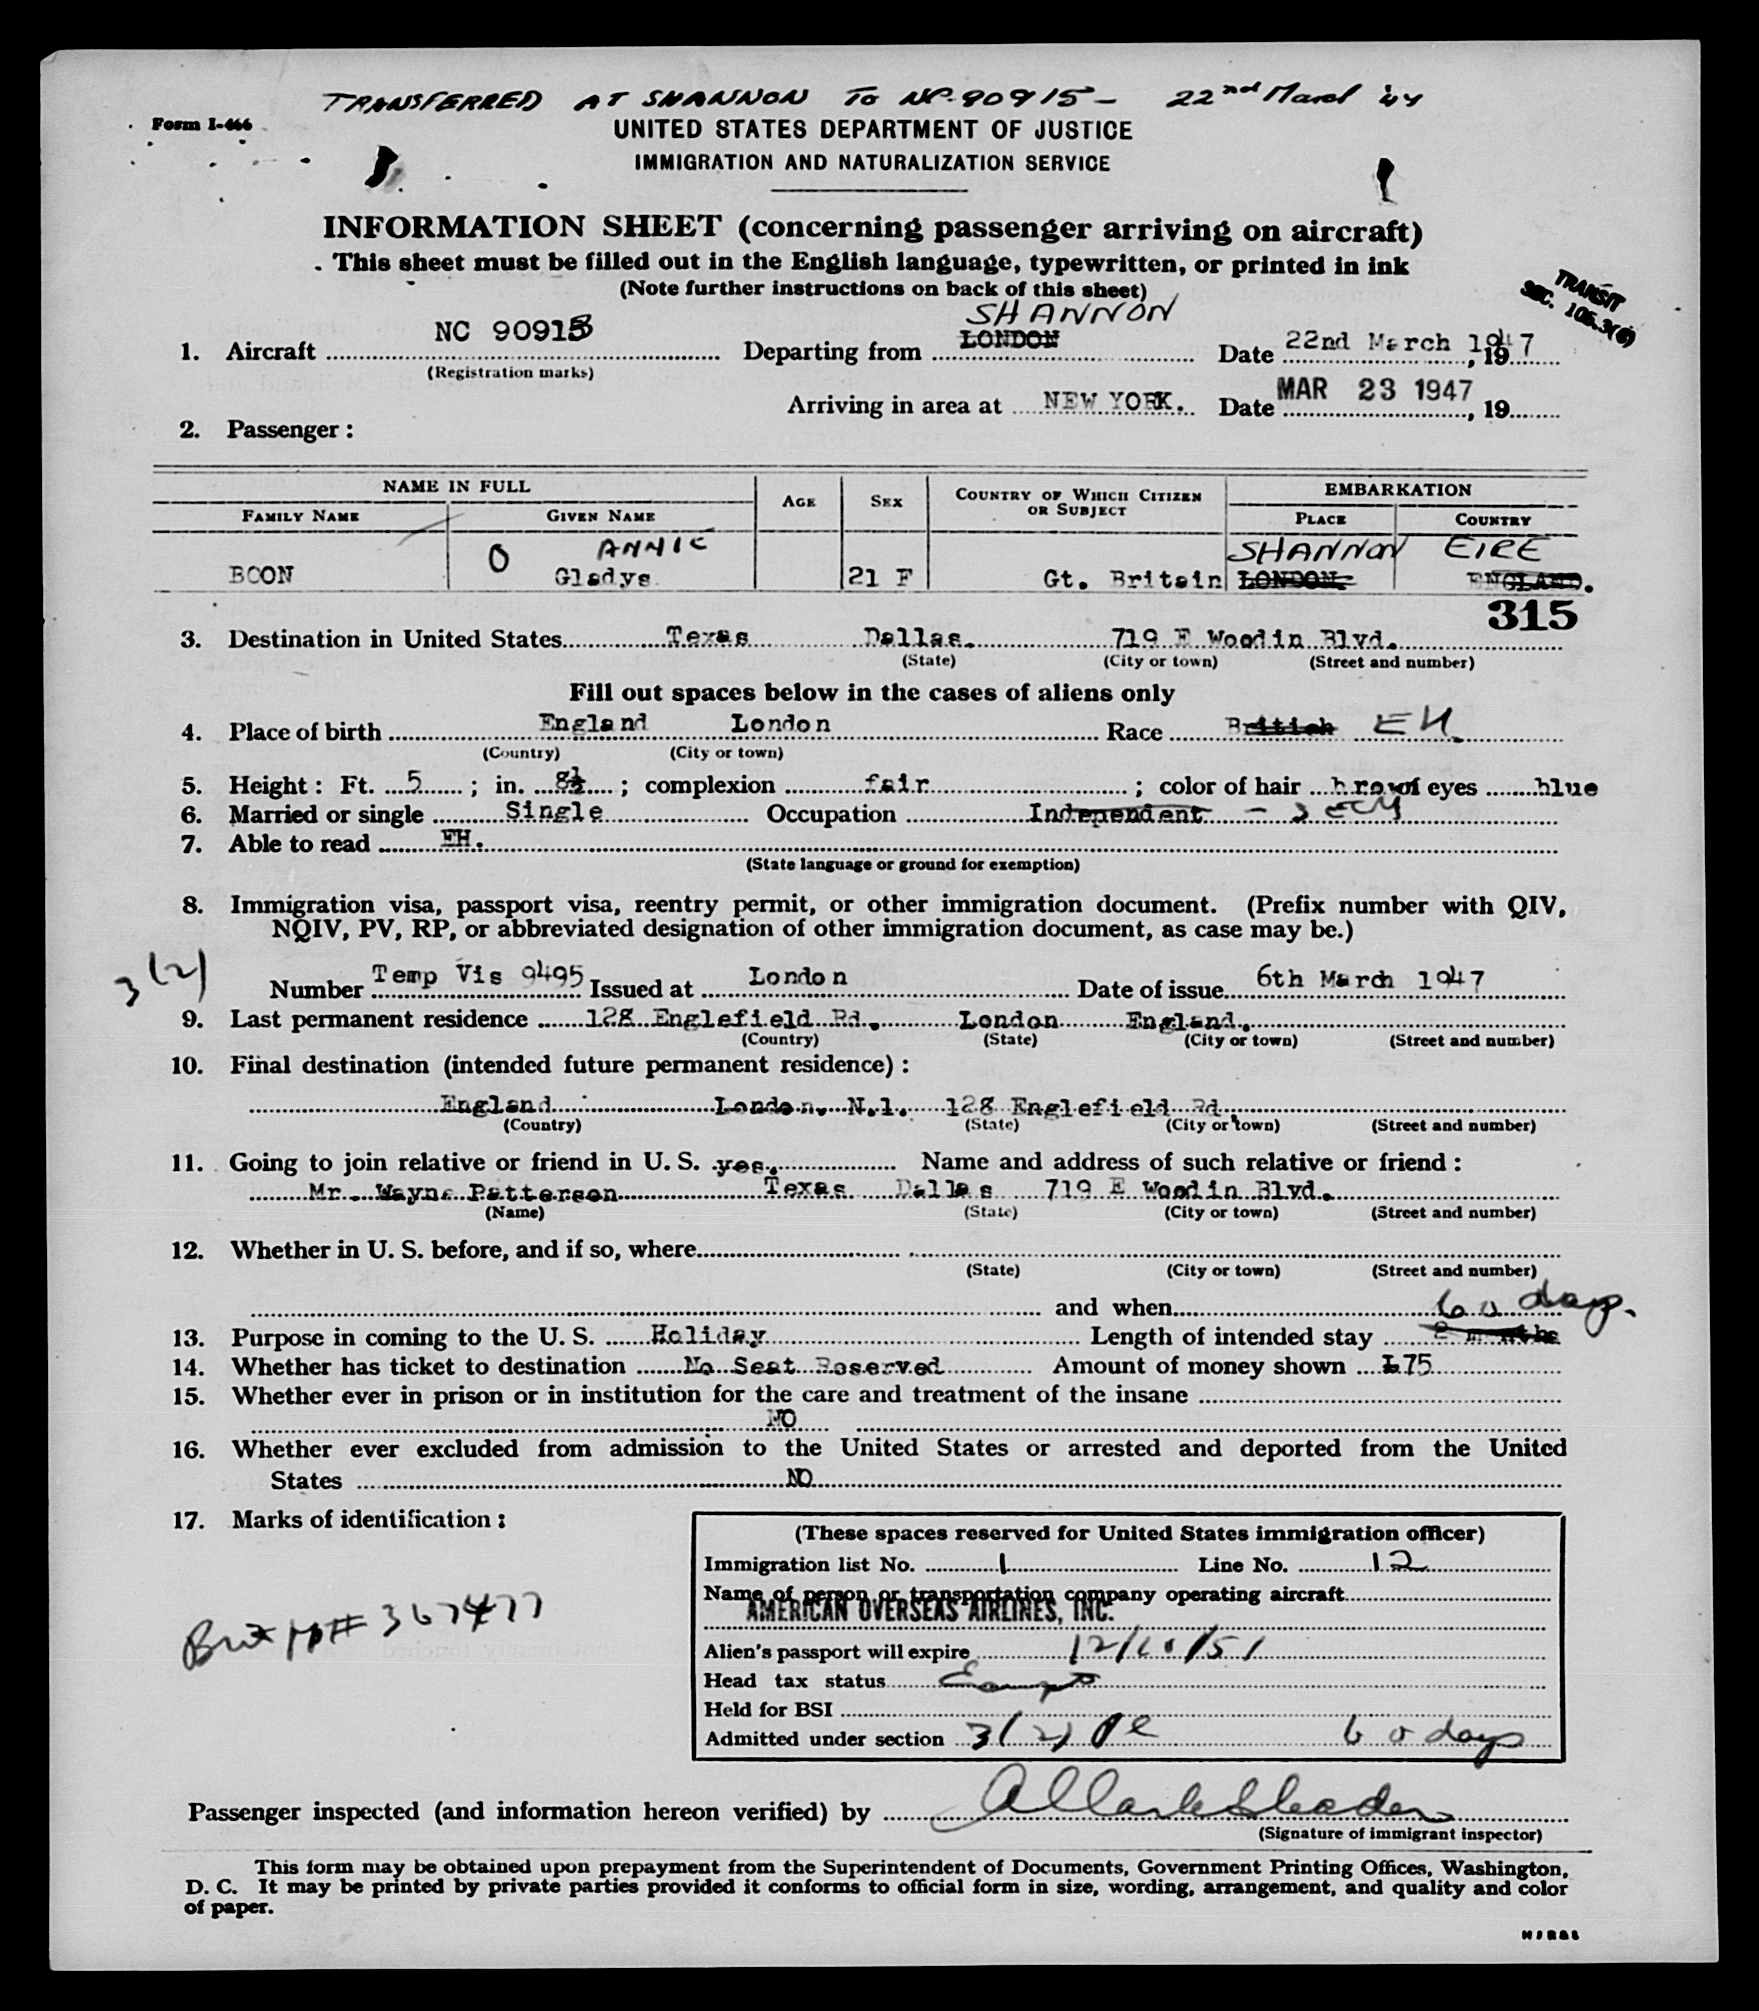 TRANSFERRED AT SHANNON TO NC. 90915 - 22nd March '47
Form I-466
UNITED STATES DEPARTMENT OF JUSTICE
IMMIGRATION AND NATURALIZATION SERVICE
INFORMATION SHEET (concerning passenger arriving on aircraft)
This sheet must be filled out in the English language, typewritten, or printed in ink
(Note further instructions on back of this sheet)
TRANSIT
SEC. 105.3(6)
SHANNON
1. Aircraft NC 9091 Departing from LONDON Date 22nd March 1947, 19
(Registration marks)
Arriving in area at NEW YORK. Date MAR 23 1947, 19
2. Passenger :
NAME IN FULL AGE SEX COUNTRY OF WHICH CITIZEN OR SUBJECT EMBARKATION
FAMILY NAME GIVEN NAME PLACE COUNTRY
O ANNIE SHANNON EIRE
BOON Gladys. 21 F Gt. Britain LONDON. ENGLAND.
315
3. Destination in United States Texas Dallas. 719 E Woodin Blvd.
(State) (City or town) (Street and number)
Fill out spaces below in the cases of aliens only
4. Place of birth England London Race British EH.
(Country) (City or town)
5. Height : Ft. 5 ; in. 8½ ; complexion fair ; color of hair brown of eyes blue
6. Married or single Single Occupation Independent - secy
7. Able to read EH.
(State language or ground for exemption)
8. Immigration visa, passport visa, reentry permit, or other immigration document. (Prefix number with QIV,
NQIV, PV, RP, or abbreviated designation of other immigration document, as case may be.)
3(2)
Number Temp Vis 9495 Issued at London Date of issue 6th March 1947
9. Last permanent residence 128 Englefield Rd. London England.
(Country) (State) (City or town) (Street and number)
10. Final destination (intended future permanent residence) :
England London. N.1. 128 Englefield Rd.
(Country) (State) (City or town) (Street and number)
11. Going to join relative or friend in U. S. yes. Name and address of such relative or friend :
Mr. Wayne Patterson Texas Dallas 719 E Woodin Blvd.
(Name) (State) (City or town) (Street and number)
12. Whether in U. S. before, and if so, where
(State) (City or town) (Street and number)
and when 60 days.
13. Purpose in coming to the U. S. Holiday Length of intended stay 2 months
14. Whether has ticket to destination No Seat Reserved Amount of money shown £75
15. Whether ever in prison or in institution for the care and treatment of the insane
NO
16. Whether ever excluded from admission to the United States or arrested and deported from the United
States NO
17. Marks of identification :
(These spaces reserved for United States immigration officer)
Immigration list No. 1 Line No. 12
Name of person or transportation company operating aircraft
AMERICAN OVERSEAS AIRLINES, INC.
Brit PP# 367477
Alien's passport will expire 12/ /51
Head tax status Exempt
Held for BSI
Admitted under section 3(2) 60 days
Passenger inspected (and information hereon verified) by
(Signature of immigrant inspector)
This form may be obtained upon prepayment from the Superintendent of Documents, Government Printing Offices, Washington,
D. C. It may be printed by private parties provided it conforms to official form in size, wording, arrangement, and quality and color
of paper.